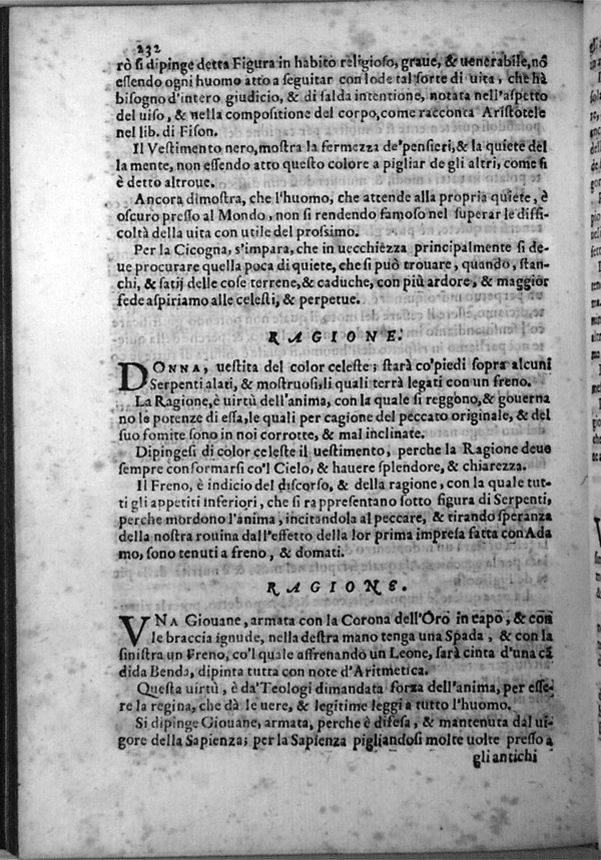 232
rò si dipinge detta Figura in habito religioso, graue, & uenerabile, nō
essendo ogni huomo atto a seguitar con lode tal sorte di uita, che hà
bisogno d'intero giudicio, & di salda intentione, notata nell'aspetto
del uiso, & nella compositione del corpo, come racconta Aristotele
nel lib. di Fison.
Il Vestimento nero, mostra la fermezza de'pensieri, & la quiete del
la mente, non essendo atto questo colore a pigliar de gli altri, come si
è detto altroue.
Ancora dimostra, che l'huomo, che attende alla propria quiete, è
oscuro presso al Mondo, non si rendendo famoso nel superar le diffi-
coltà della uita con utile del prossimo.
Per la Cicogna, s'impara, che in uecchiezza principalmente si de-
ue procurare quella poca di quiete, che si può trouare, quando, stan-
chi, & satij delle cose terrene, & caduche, con più ardore, & maggior
fede aspiriamo alle celesti, & perpetue.
RAGIONE.
DONNA, uestita del color celeste; starà co'piedi sopra alcuni
Serpenti alati, & mostruosi, li quali terrà legati con un freno.
La Ragione, è uirtù dell'anima, con la quale si reggono, & gouerna
no le potenze di essa, le quali per cagione del peccato originale, & del
suo fomite sono in noi corrotte, & mal inclinate.
Dipingesi di color celeste il uestimento, perche la Ragione deue
sempre conformarsi co'l Cielo, & hauere splendore, & chiarezza.
Il Freno, è indicio del discorso, & della ragione, con la quale tut-
ti gli appetiti inferiori, che si rappresentano sotto figura di Serpenti,
perche mordono l'anima, incitandola al peccare, & tirando speranza
della nostra rouina dall'effetto della lor prima impresa fatta con Ada
mo, sono tenuti a freno, & domati.
RAGIONE.
VNA Giouane, armata con la Corona dell'Oro in capo, & con
le braccia ignude, nella destra mano tenga una Spada, & con la
sinistra un Freno, co'l quale affrenando un Leone, sarà cinta d'una cā
dida Benda, dipinta tutta con note d'Aritmetica.
Questa uirtù, è da'Teologi dimandata forza dell'anima, per esse-
re la regina, che dà le uere, & legitime leggi a tutto l'huomo.
Si dipinge Giouane, armata, perche è difesa, & mantenuta dal ui-
gore della Sapienza; per la Sapienza pigliandosi molte uolte presso a
gli antichi